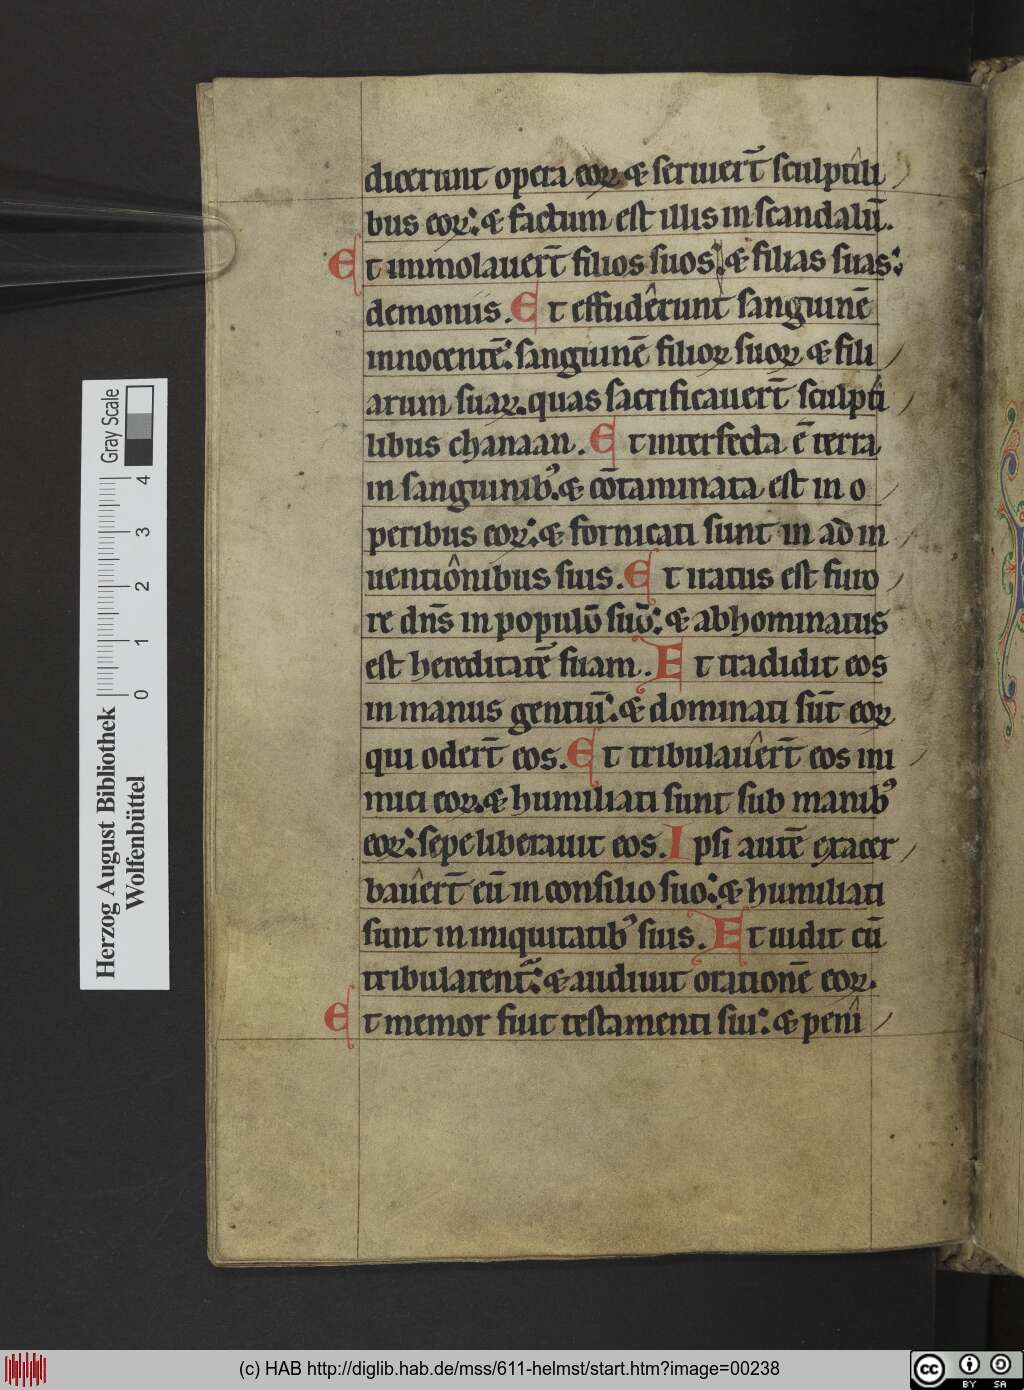 dicerunt opera eoꝝ & seruierūt sculptili
bus eoꝝ: & factum est illis in scandalū.
Et immolauerūt filios suos: & filias suas:
demoniis. Et effuderunt sanguinē
innocentē: sanguinē filioꝝ suoꝝ & fili
arum suaꝝ. quas sacrificauerūt sculpti
libus chanaan. Et interfecta ē terra
in sanguinibꝰ. & cōtaminata est in o
peribus eoꝝ: & fornicati sunt in ad in
uentiônibus suis. Et iratus est furo
re dn̄s in populū suū: & abhominatus
est hereditatē suam. Et tradidit eos
in manus gentiū: & dominati sūt eoꝝ
qui oderūt eos. Et tribulauêrt̄ eos ini
mici eoꝝ. & humiliati sunt sub manibꝰ
eoꝝ: sepe liberauit eos. Ipsi autē exacer
bauêrt̄ eū in consilio suo: & humiliati
sunt in iniquitatibꝰ suis. Et uidit cū
tribularentᷣ: & audiuit orationē eoꝝ.
Et memor fuit testamenti sui: & penî
Herzog August Bibliothek
Wolfenbüttel
0 1 2 3 4
Gray Scale
(c) HAB http://diglib.hab.de/mss/611-helmst/start.htm?image=00238
cc BY SA